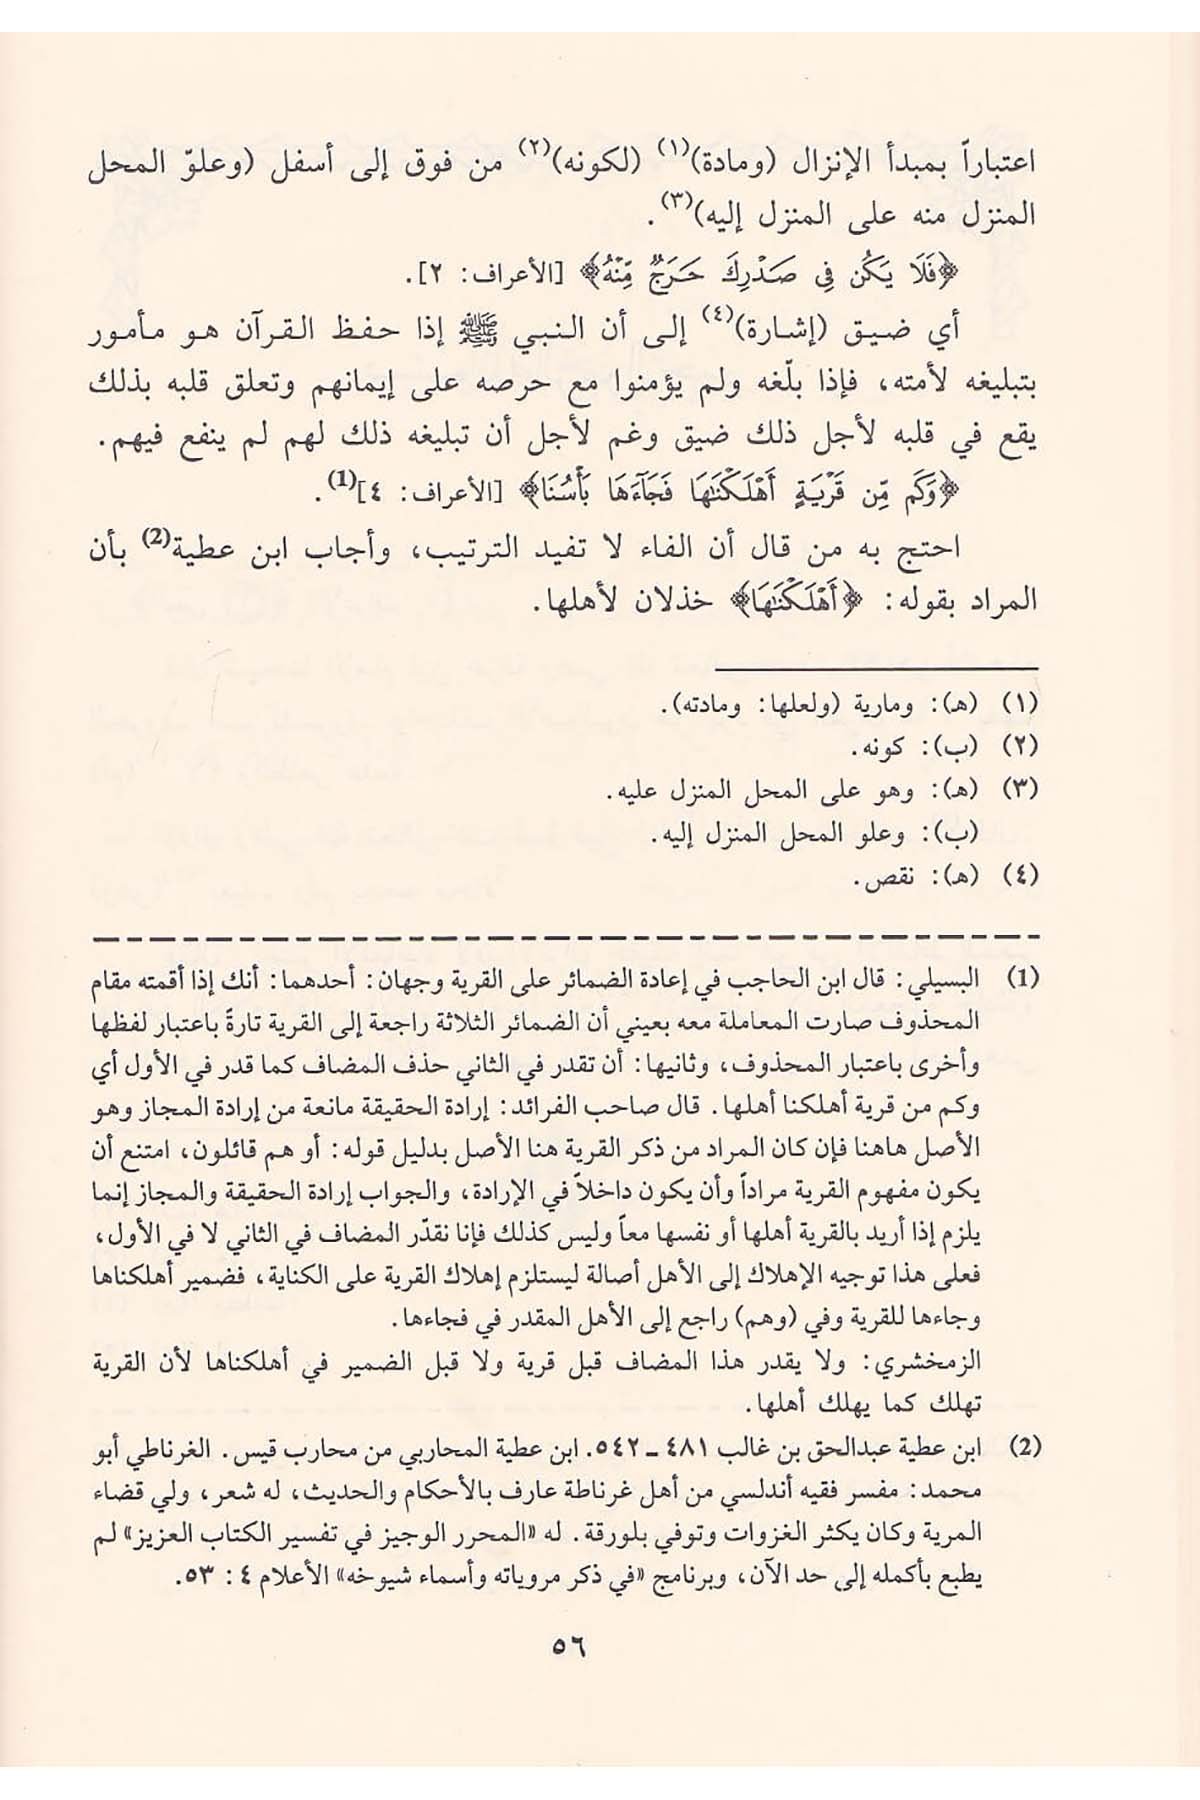 اعتباراً بمبدأ الإنزال (ومادة)(١) (لكونه)(٢) من فوق إلى أسفل (وعلوّ المحل
المنزل منه على المنزل إليه)(٣).
﴿فَلَا يَكُن فِى صَدْرِكَ حَرَجٌ مِّنْهُ﴾ [الأعراف: ٢].
أي ضيق (إشارة)(٤) إلى أن النبي ﷺ إذا حفظ القرآن هو مأمور
بتبليغه لأمته، فإذا بلّغه ولم يؤمنوا مع حرصه على إيمانهم وتعلق قلبه بذلك
يقع في قلبه لأجل ذلك ضيق وغم لأجل أن تبليغه ذلك لهم لم ينفع فيهم.
﴿وَكَم مِّن قَرْيَةٍ أَهْلَكْنَٰهَا فَجَآءَهَا بَأْسُنَا﴾ [الأعراف: ٤](1).
احتج به من قال أن الفاء لا تفيد الترتيب، وأجاب ابن عطية(2) بأن
المراد بقوله: ﴿أَهْلَكْنَٰهَا﴾ خذلان لأهلها.
(١) (هـ): ومارية (ولعلها: ومادته).
(٢) (ب): كونه.
(٣) (هـ): وهو على المحل المنزل عليه.
(ب): وعلو المحل المنزل إليه.
(٤) (هـ): نقص.
(1) البسيلي: قال ابن الحاجب في إعادة الضمائر على القرية وجهان: أحدهما: أنك إذا أقمته مقام
المحذوف صارت المعاملة معه بعيني أن الضمائر الثلاثة راجعة إلى القرية تارةً باعتبار لفظها
وأخرى باعتبار المحذوف، وثانيها: أن تقدر في الثاني حذف المضاف كما قدر في الأول أي
وكم من قرية أهلكنا أهلها. قال صاحب الفرائد: إرادة الحقيقة مانعة من إرادة المجاز وهو
الأصل هاهنا فإن كان المراد من ذكر القرية هنا الأصل بدليل قوله: أو هم قائلون، امتنع أن
يكون مفهوم القرية مراداً وأن يكون داخلاً في الإرادة، والجواب إرادة الحقيقة والمجاز إنما
يلزم إذا أريد بالقرية أهلها أو نفسها معاً وليس كذلك فإنا نقدّر المضاف في الثاني لا في الأول،
فعلى هذا توجيه الإهلاك إلى الأهل أصالة ليستلزم إهلاك القرية على الكناية، فضمير أهلكناها
وجاءها للقرية وفي (وهم) راجع إلى الأهل المقدر في فجاءها.
الزمخشري: ولا يقدر هذا المضاف قبل قرية ولا قبل الضمير في أهلكناها لأن القرية
تهلك كما يهلك أهلها.
(2) ابن عطية عبدالحق بن غالب ٤٨١ - ٥٤٢. ابن عطية المحاربي من محارب قيس. الغرناطي أبو
محمد: مفسر فقيه أندلسي من أهل غرناطة عارف بالأحكام والحديث، له شعر، ولي قضاء
المرية وكان يكثر الغزوات وتوفي بلورقة. له «المحرر الوجيز في تفسير الكتاب العزيز» لم
يطبع بأكمله إلى حد الآن، وبرنامج «في ذكر مروياته وأسماء شيوخه» الأعلام ٤: ٥٣.
٥٦